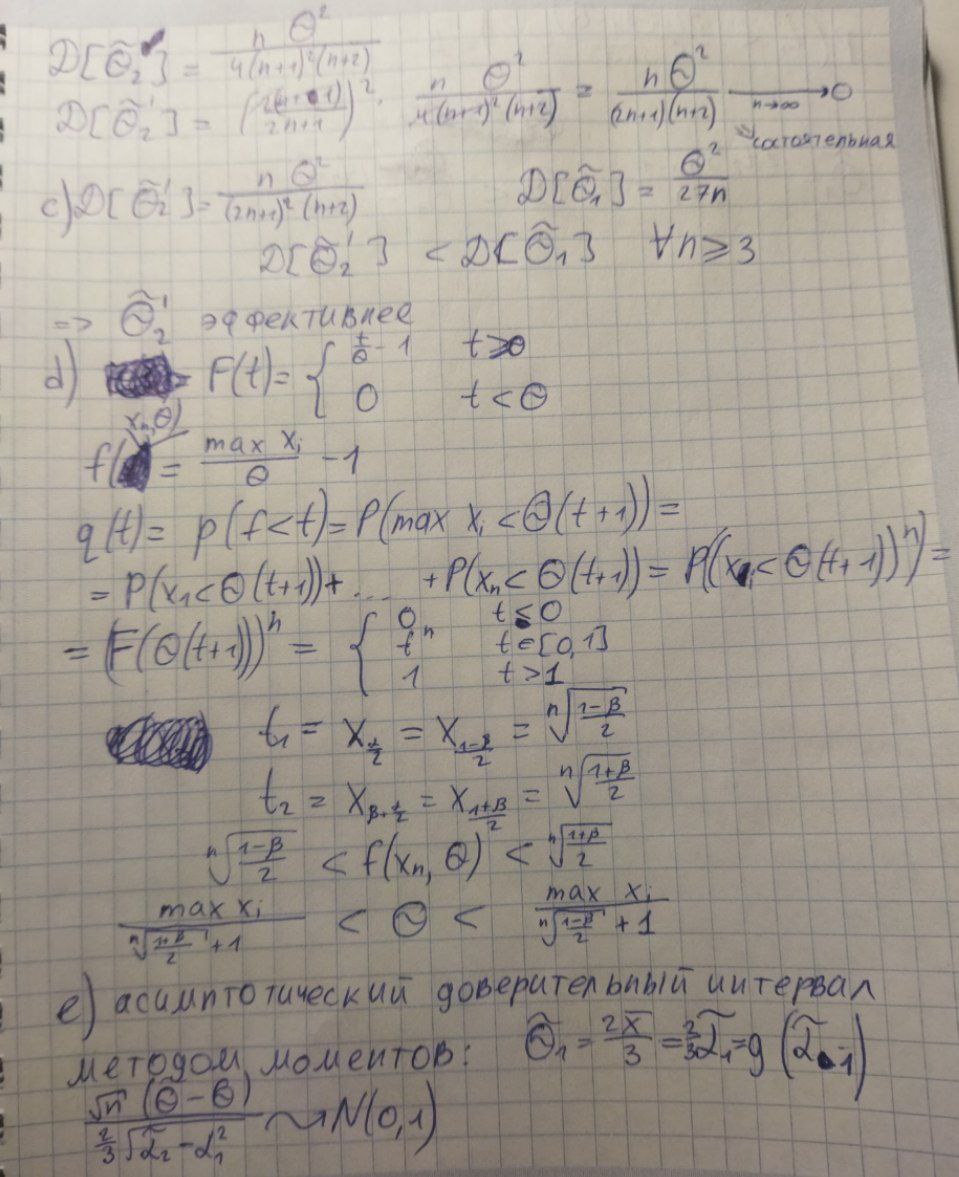 D[θ̃₂] = nθ² / 4(n+1)²(n+2)
D[θ̃₂'] = (2(n+1) / 2n+1)² · nθ² / 4(n+1)²(n+2) = nθ² / (2n+1)(n+2) → 0 n→∞
⇒ состоятельная
c) D[θ̃₂'] = nθ² / (2n+1)²(n+2) D[θ̃₁] = θ² / 27n
D[θ̃₂'] < D[θ̃₁] ∀n ⩾ 3
=> θ̃₂' эффективнее
d) F(t) = { t/θ - 1 t ⩾ θ
0 t < θ
f(xₙ, θ) = max xᵢ / θ - 1
q(t) = p(f < t) = P(max xᵢ < θ(t+1)) =
= P(x₁ < θ(t+1)) + .... + P(xₙ < θ(t+1)) = P((xᵢ < θ(t+1))ⁿ) =
= (F(θ(t+1)))ⁿ = { 0 t ≤ 0
tⁿ t ∈ [0,1]
1 t > 1
t₁ = x_{t/2} = x_{(1-β)/2} = ⁿ√((1-β)/2)
t₂ = x_{β+t/2} = x_{(1+β)/2} = ⁿ√((1+β)/2)
ⁿ√((1-β)/2) < f(xₙ, θ) < ⁿ√((1+β)/2)
max xᵢ / (ⁿ√((1+β)/2) + 1) < θ < max xᵢ / (ⁿ√((1-β)/2) + 1)
e) асимптотический доверительный интервал
методом моментов: θ̃₁ = 2x̄/3 = 2/3 α̃₁ = g(α̃₁)
√n (θ̃ - θ) / (2/3 √(α̃₂ - α₁²)) ⇝ N(0,1)